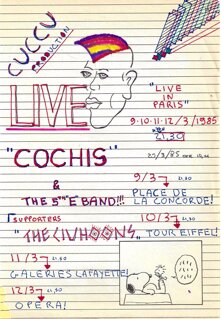 CUCCU
PRODUCTION
LIVE
"LIVE
IN
PARIS"
9·10·11·12/3/1985
21,30
"COCHIS"
&
THE 5™E BAND!!!
9/3 → 21,30
PLACE DE
LA CONCORDE!
SUPPORTERS
10/3 → 21,30
TOUR EIFFEL!
11/3 → 21,30
GALERIES LAFAYETTE!
12/3 → 21,30
OPERA!